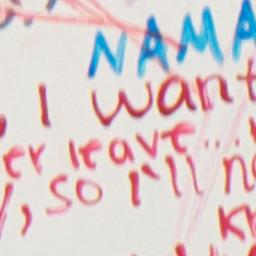 NAMA
, I want
er leave...
, so I'll n
kn